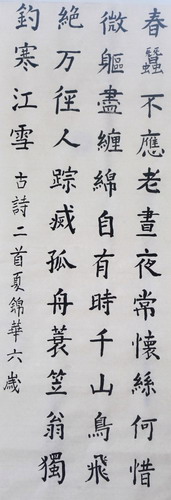 春蠶不應老晝夜常懷絲何惜
微軀盡纏綿自有時千山鳥飛
絕万徑人踪滅孤舟蓑笠翁獨
釣寒江雪 古詩二首夏錦華六歲